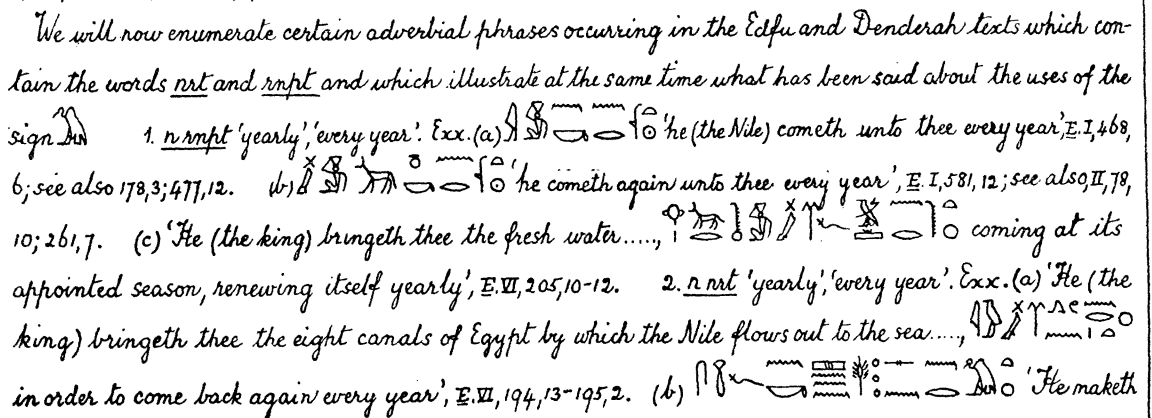 We will now enumerate certain adverbial phrases occurring in the Edfu and Denderah texts which con-
tain the words nrt and rnpt and which illustrate at the same time what has been said about the uses of the
sign 1. n rnpt 'yearly', 'every year'. Exx. (a) 'he (the Nile) cometh unto thee every year', E. I, 468,
6; see also 178,3; 477,12. (b) 'he cometh again unto thee every year', E. I, 581, 12; see also, II, 78,
10; 261,7. (c) 'He (the king) bringeth thee the fresh water....., coming at its
appointed season, renewing itself yearly', E. VI, 205, 10-12. 2. n nrt 'yearly', 'every year'. Exx. (a) 'He (the
king) bringeth thee the eight canals of Egypt by which the Nile flows out to the sea.....,
in order to come back again every year', E. VI, 194, 13-195, 2. (b) 'He maketh